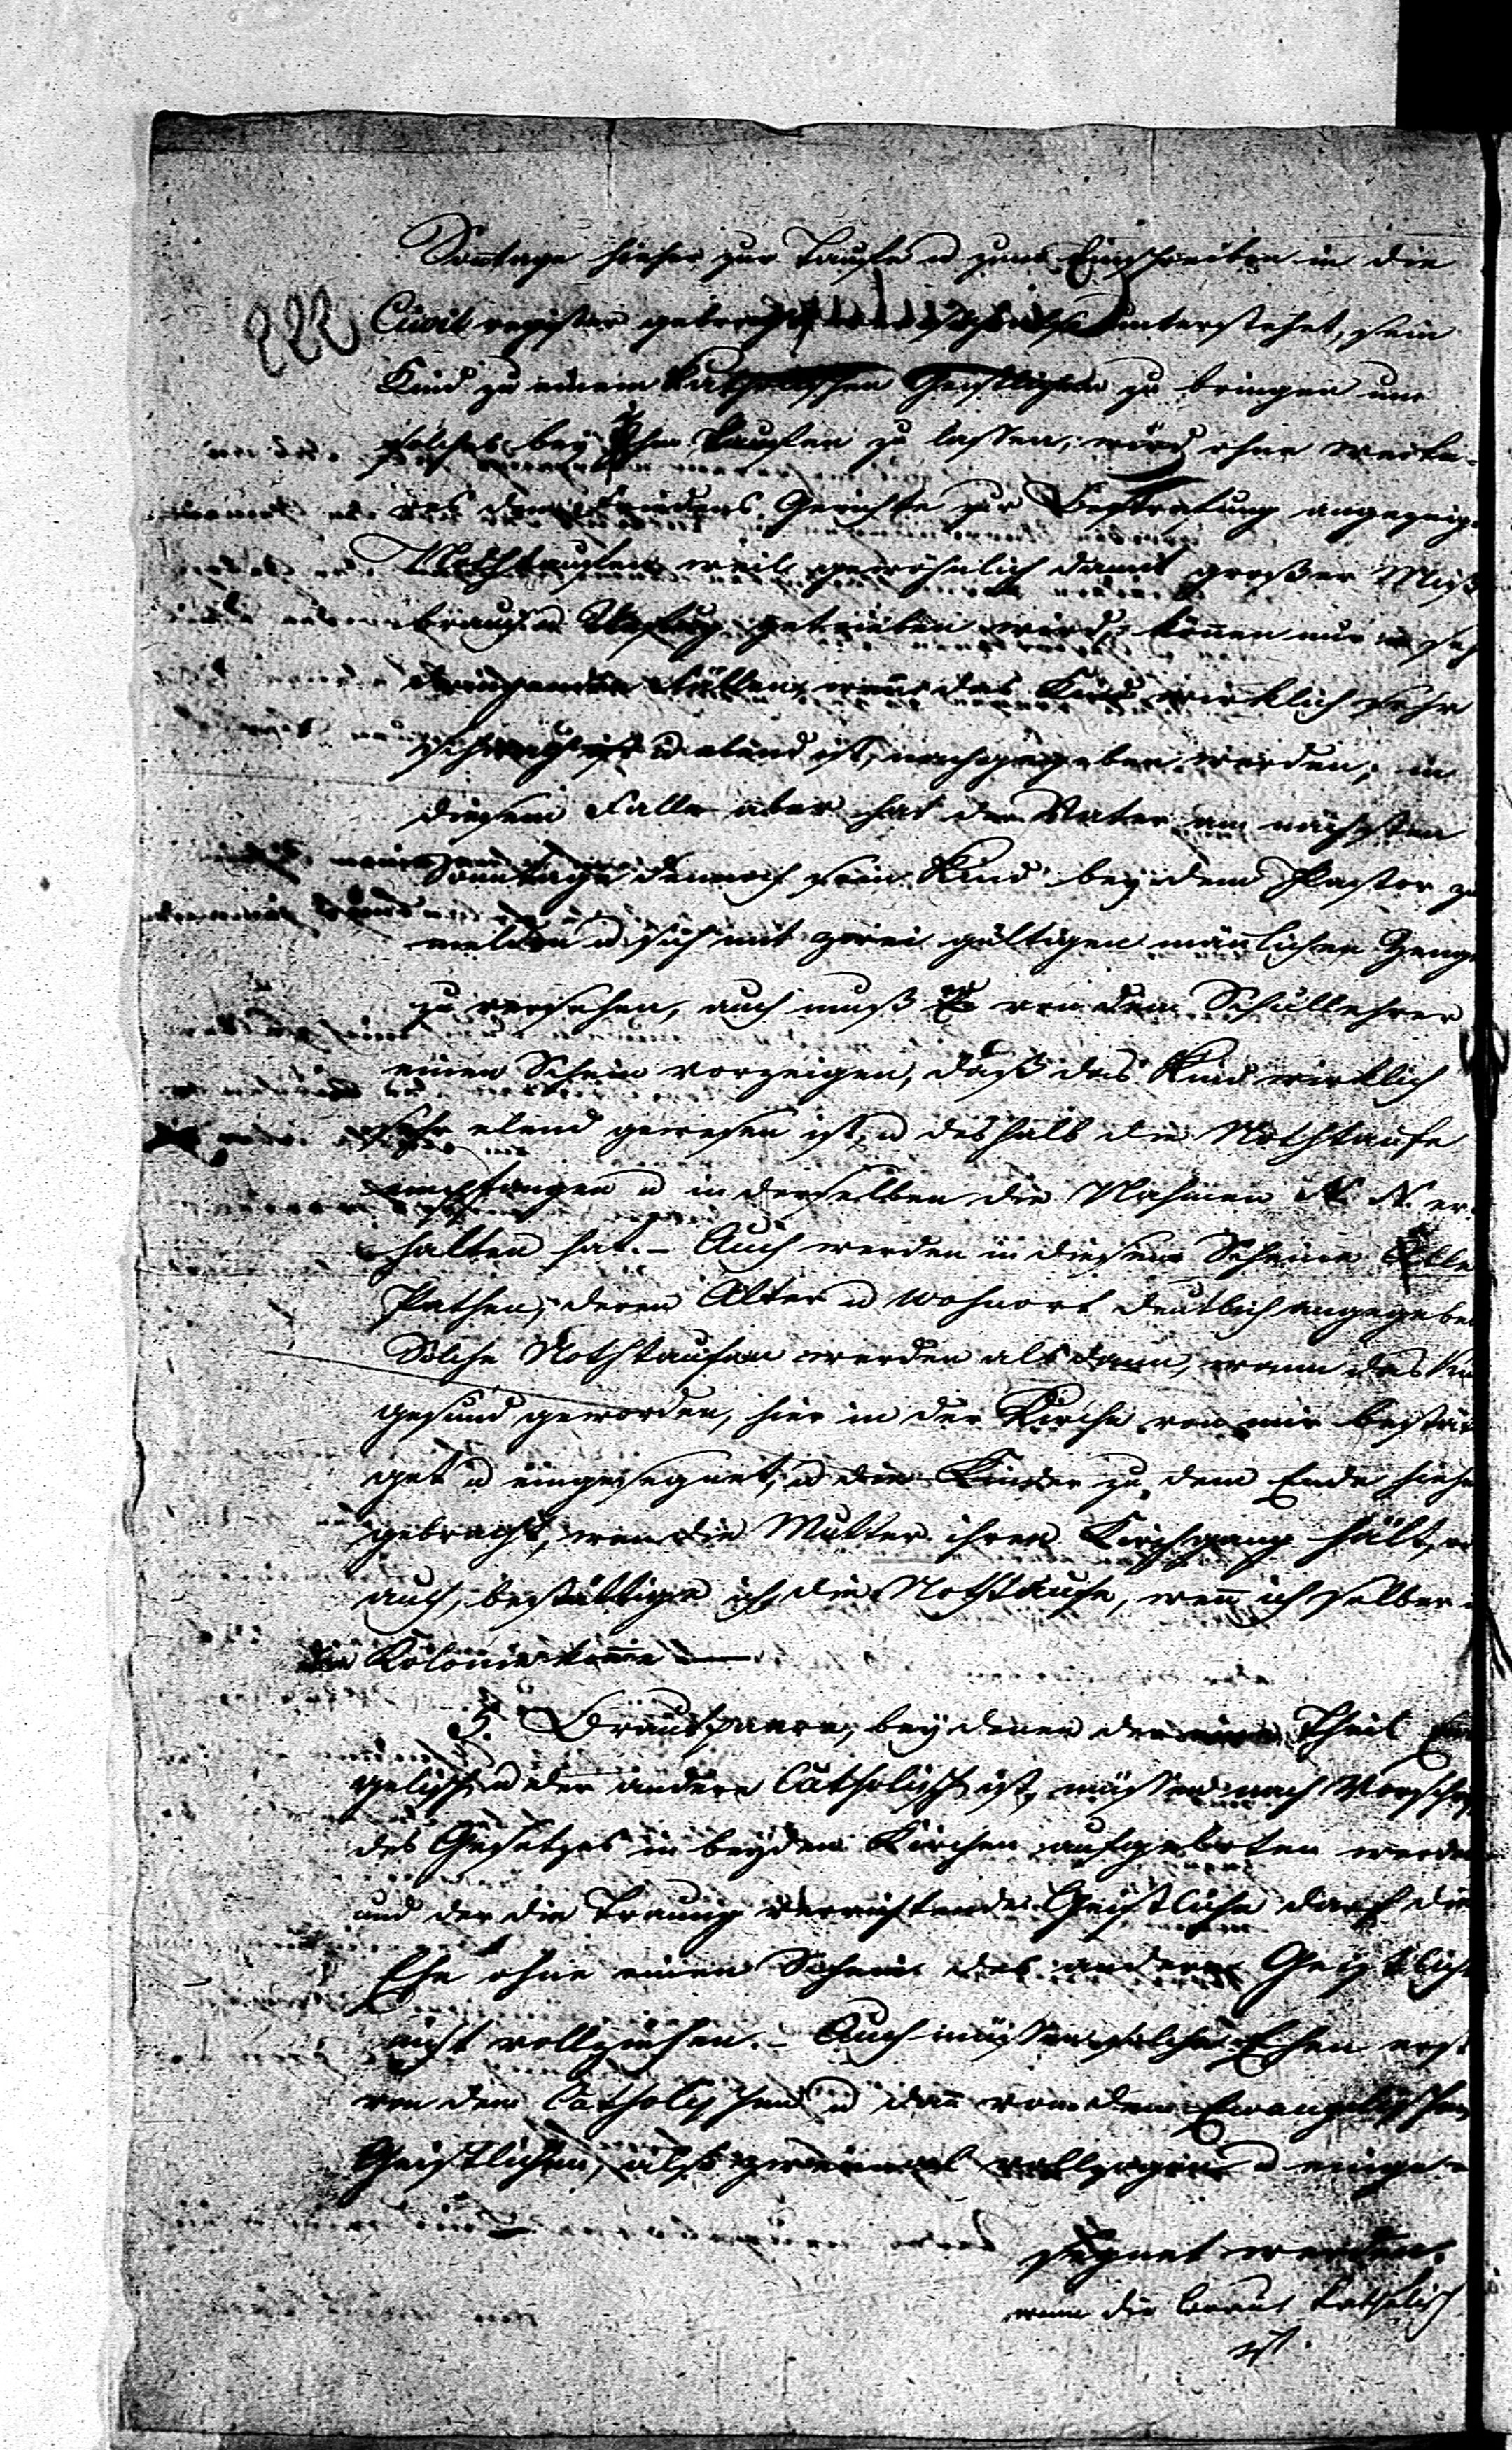 Sontage hieher zur Taufe u zum Einschreiben in die
Civil register gebracht unterstehet, sein
Kind zu einem Katholischen Geistlichen zu bringen um
solches bey ihm taufen zu lassen, wird ohne weite-
res dem Friedens Gerichte zur Bestrafung angezeigt
Nothtaufen, weil gewöhnlich damit großer Miß
brauch u Unfug getrieben wird, können nur in seh
dringenden Fällen, wenn das Kind wirklich sehr
schwach u elend ist, nachgegeben werden; in
diesem Falle aber hat der Vater am nächsten
Sonntage dennoch sein Kind bey dem Pastor zu
melden u sich mit zwei gültigen mänlichen Zeuge
zu versehen, auch muß er von dem Schullehrer
einen Schein vorzeigen, daß das Kind wirklich
sehr elend gewesen ist, u deshalb die Nothtaufe
empfangen u in derselben die Nahmen N. N. er-
halten hat. – Auch werden in diesem Scheine Alle
Pathen, deren Alter u Wohnort deutlich angegeben
Solche Nothtaufen werden alsdann, wann das Kin
gesund geworden, hier in der Kirche von mir bestät
get u eingesegnet, u die Kinder zu dem Ende hieher
gebracht, wen die Mutter ihren Kirchgang hält,
auch bestättige ich die Nothtaufe, wen ich selber
die Kolonie komme —
5. Brautpaare, bey denen der eine Theil Evan
gelisch u der andere Catholisch ist, müssen nach Vorschrif
des Gesetzes in beyden Kirchen aufgeboten werden
und der die Trauung verrichtende Geistliche darf die
Ehe ohne einen Schein des andern Geistlich
nicht vollziehen. – Auch müssen solche Ehen erst
von dem Catholischen u dan von dem Evangelischen
Geistlichen, also zweimal vollzogen u einge-
segnet werden.
wenn die Braut Katholisch
ist.